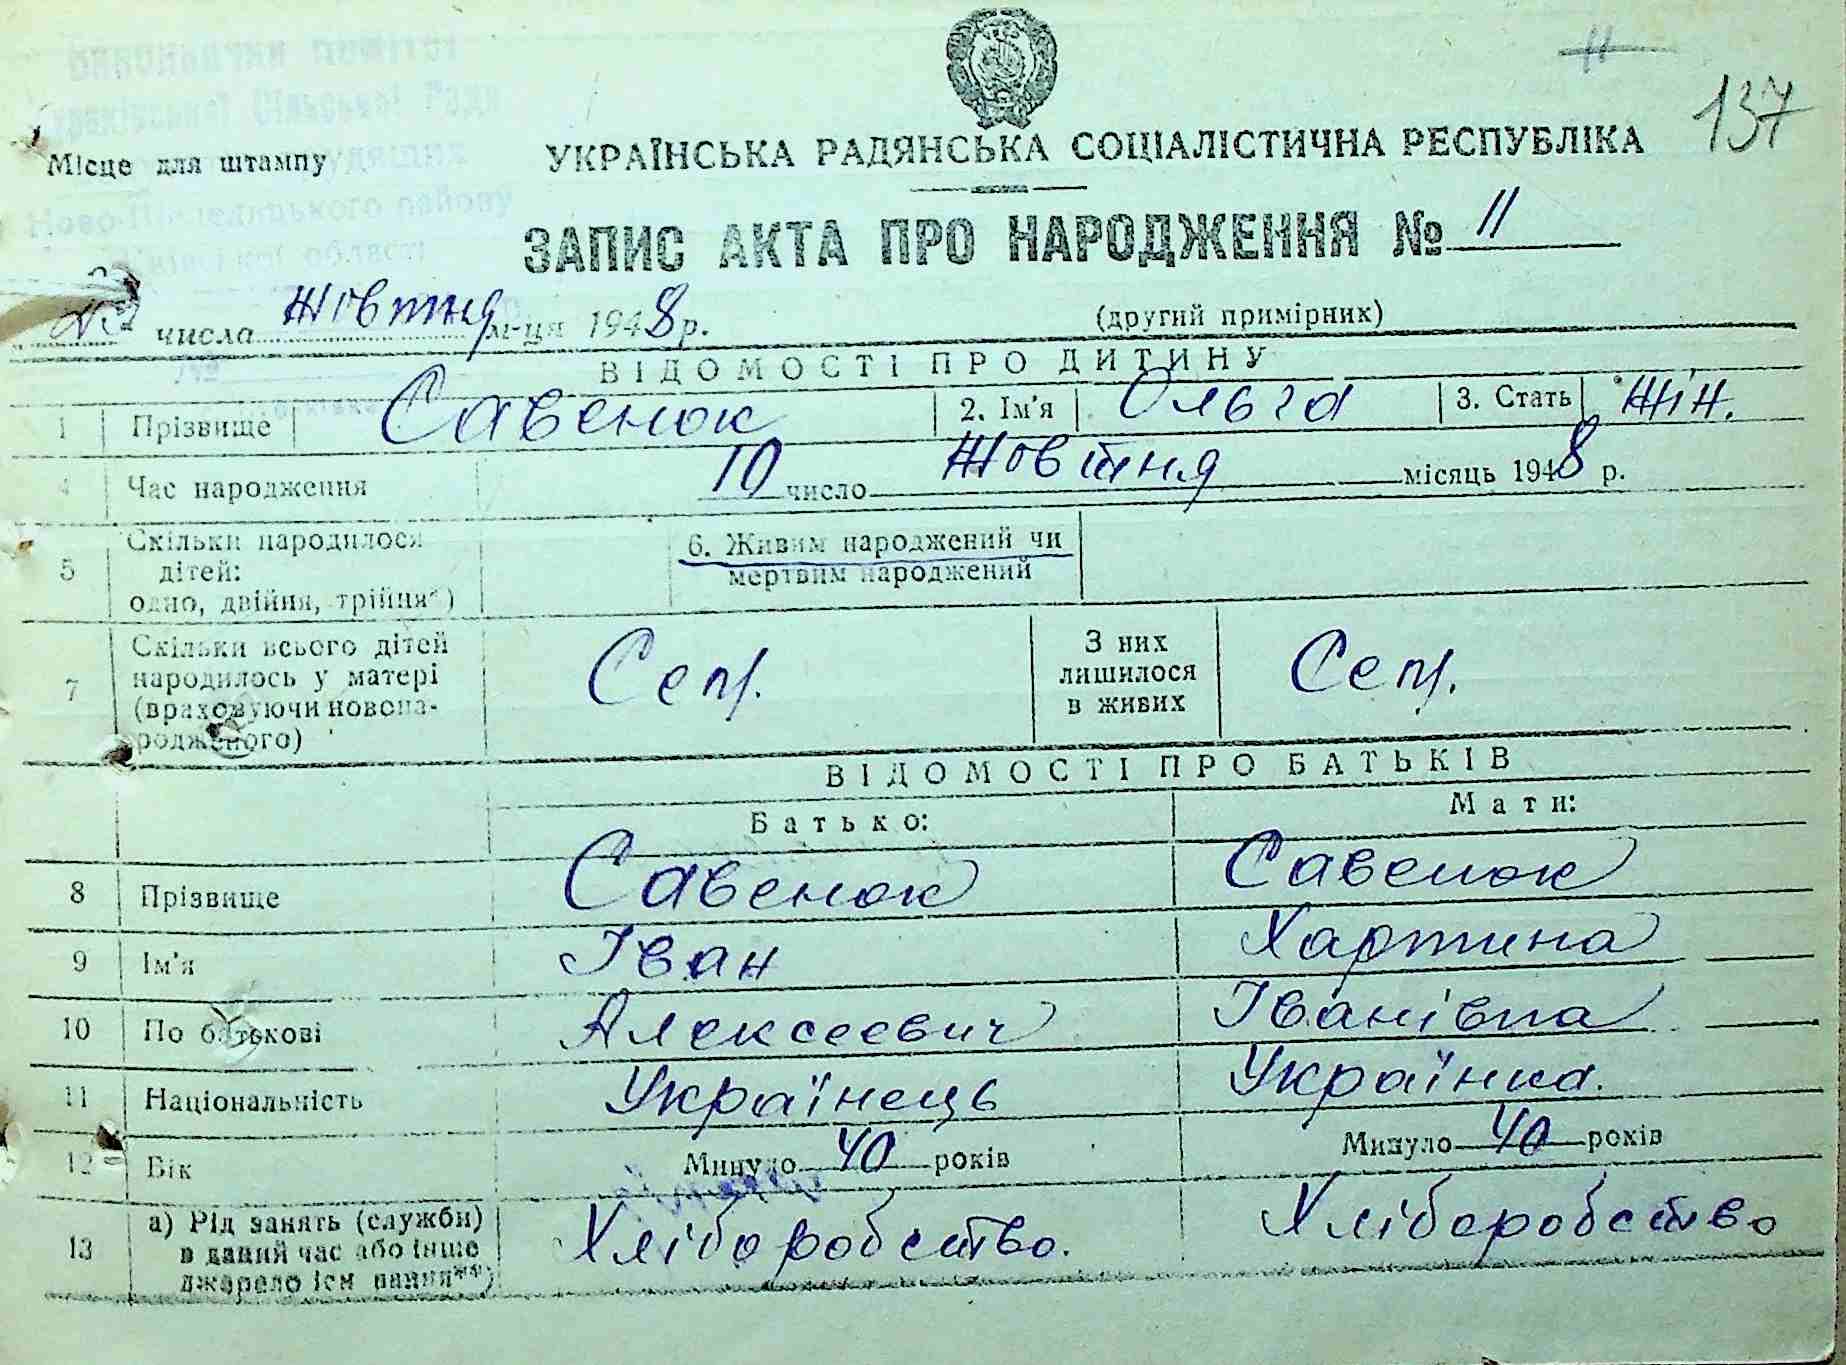 11
137
Місце для штампу
УКРАЇНСЬКА РАДЯНСЬКА СОЦІАЛІСТИЧНА РЕСПУБЛІКА
ЗАПИС АКТА ПРО НАРОДЖЕННЯ № 11
Сільської Ради
району
області
числа Жовтня м-ця 1948 р.
(другий примірник)
ВІДОМОСТІ ПРО ДИТИНУ
1 Прізвище Савенок 2. Ім'я Ольга 3. Стать Жін.
4 Час народження 10 число Жовтня місяць 1948 р.
5 Скільки народилося дітей: одно, двійня, трійня*) 6. Живим народжений чи мертвим народжений
7 Скільки всього дітей народилось у матері (враховуючи новонародженого) З них лишилося в живих
ВІДОМОСТІ ПРО БАТЬКІВ
Батько: Мати:
8 Прізвище Савенок Савенок
9 Ім'я Іван Хартина
10 По батькові Алексеевич Іванівна
11 Національність Українець Українка.
12 Вік Минуло 40 років Минуло 40 років
13 а) Рід занять (служби) в даний час або інше джерело існування**) Хліборобство. Хліборобство